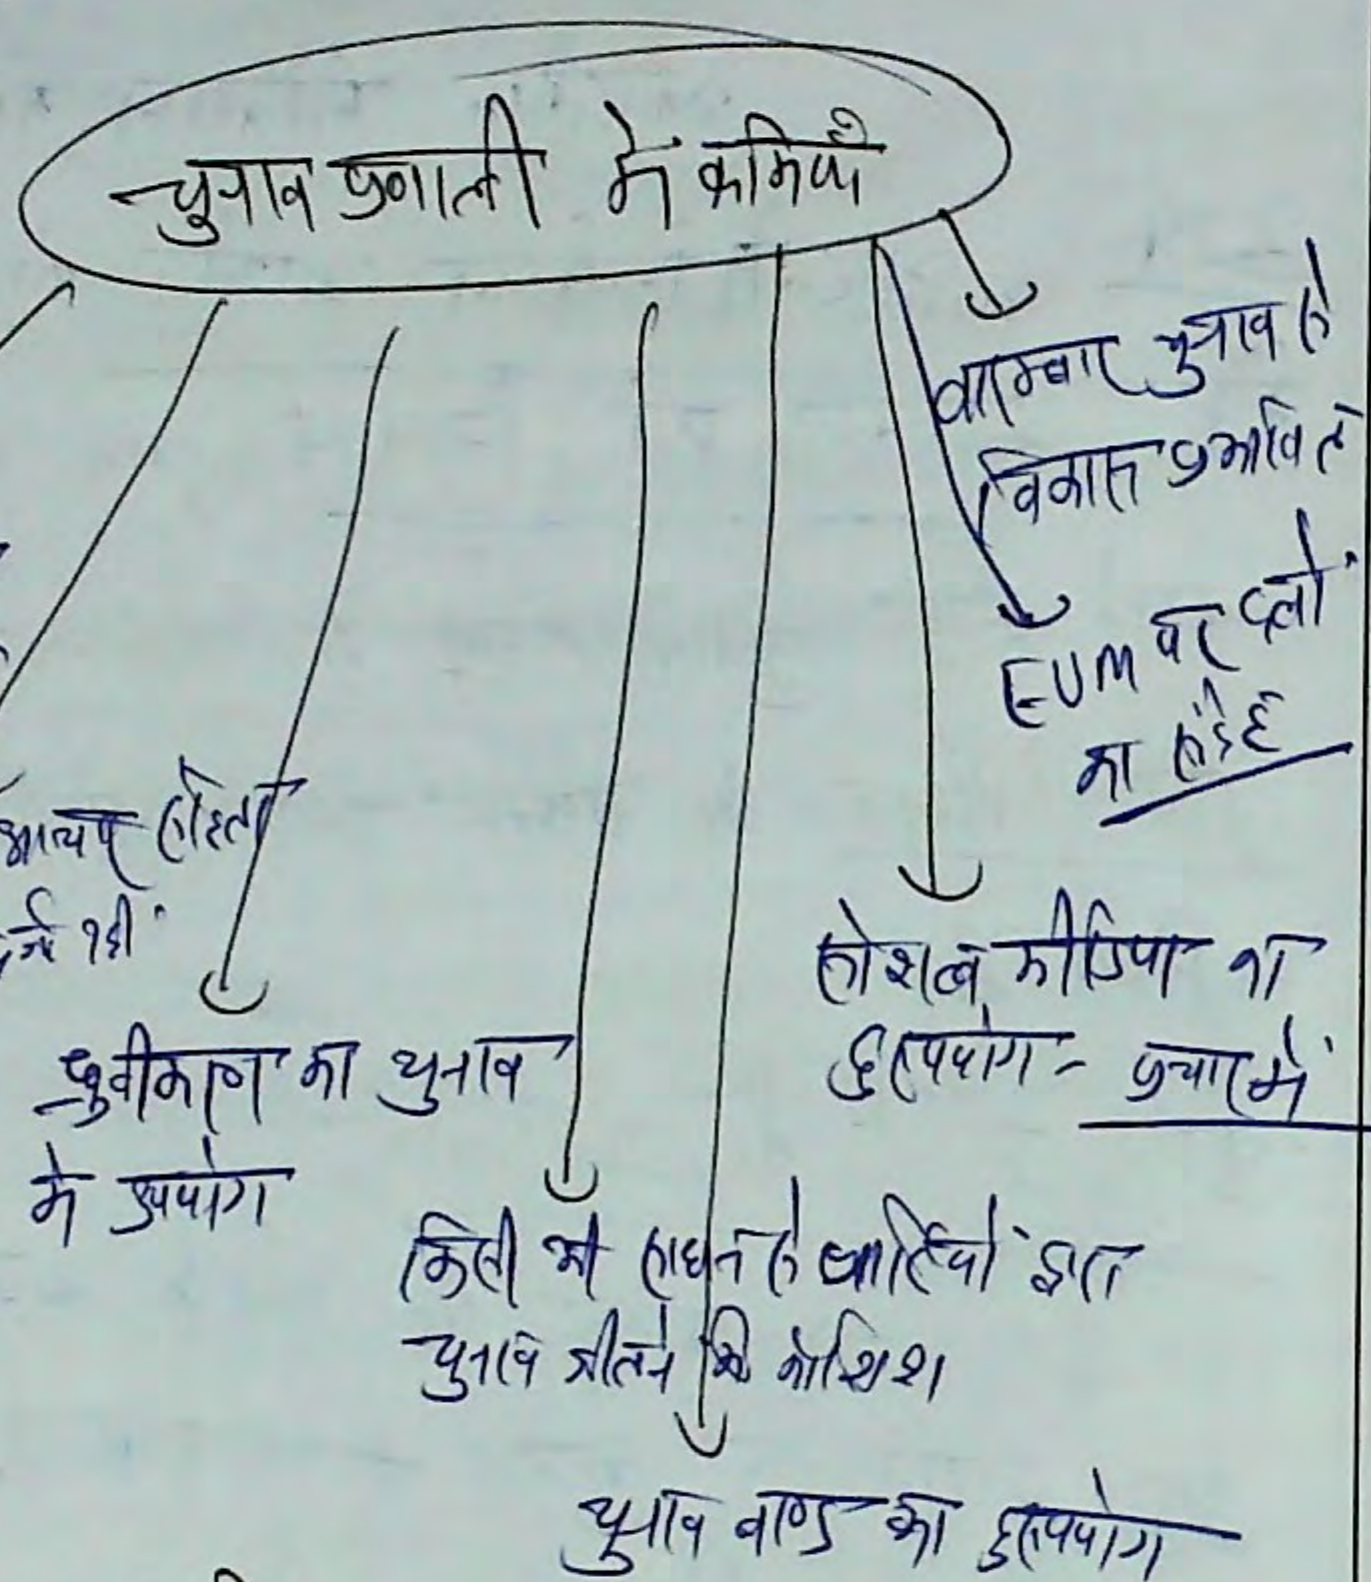 चुनाव प्रणाली में कमियाँ
बारम्बार चुनाव से
विकास प्रभावित
EVM पर दलों
का संदेह
आचार संहिता
नहीं
ध्रुवीकरण का चुनाव
में उपयोग
सोशल मीडिया का
दुरुपयोग - प्रचार में
किसी भी साधन से पार्टियों द्वारा
चुनाव जीतने की कोशिश
चुनाव बाण्ड का दुरुपयोग